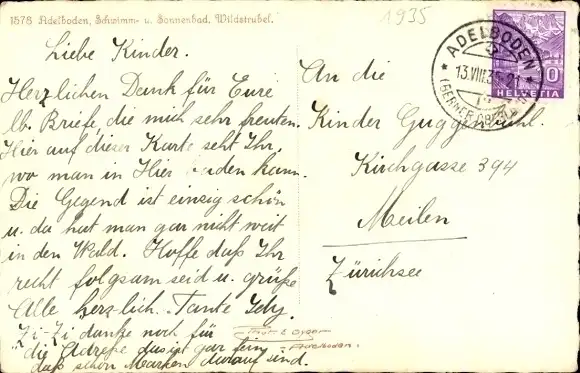 1578 Adelboden, Schwimm- u. Sonnenbad, Wildstrubel.
1935
Liebe Kinder.
Herzlichen Dank für Eure
lb. Briefe, die mich sehr freuten.
Hier auf dieser Karte seht Ihr,
wo man in Hier baden kann.
Die Gegend ist einzig schön
u. da hat man gar nicht weit
in den Wald. Hoffe daß Ihr
recht folgsam seid u. grüße
Alle herzlich. Tante
Zi-Zi danke noch für
die Adresse das ist gar fein
daß schon Marken darauf sind.
ADELBODEN
13.VIII.35
(BERNER OBERL.)
10
HELVETIA
An die
Kinder Guggenbühl.
Kirchgasse 394
Meilen
Zürichsee
Adelboden.